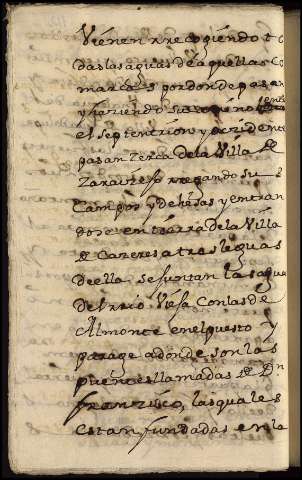 Vienen rrecogiendo to
das las aguas de aquellas Co
marcas por donde pasan
y haziendo su camino entre
el septentrion y ocidente
pasan Zerca de la Villa de
Zarauiexo rregando sus
Campos y dehesas y entran
dose en tierra de la Villa
de Cazeres a tres leguas
de ella se juntan las agua
del rrio Viexa con las de
Almonte en el puesto y
parage adonde son las
puentes llamadas de Dn
francisco, las quales
estan fundadas en la